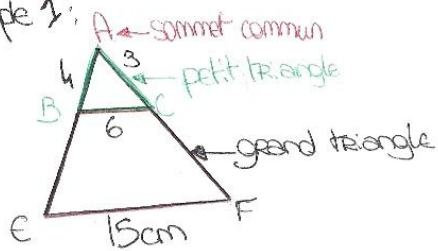 ple 1:
A ← sommet commun
4
3
petit triangle
B
C
6
grand triangle
E
F
15cm